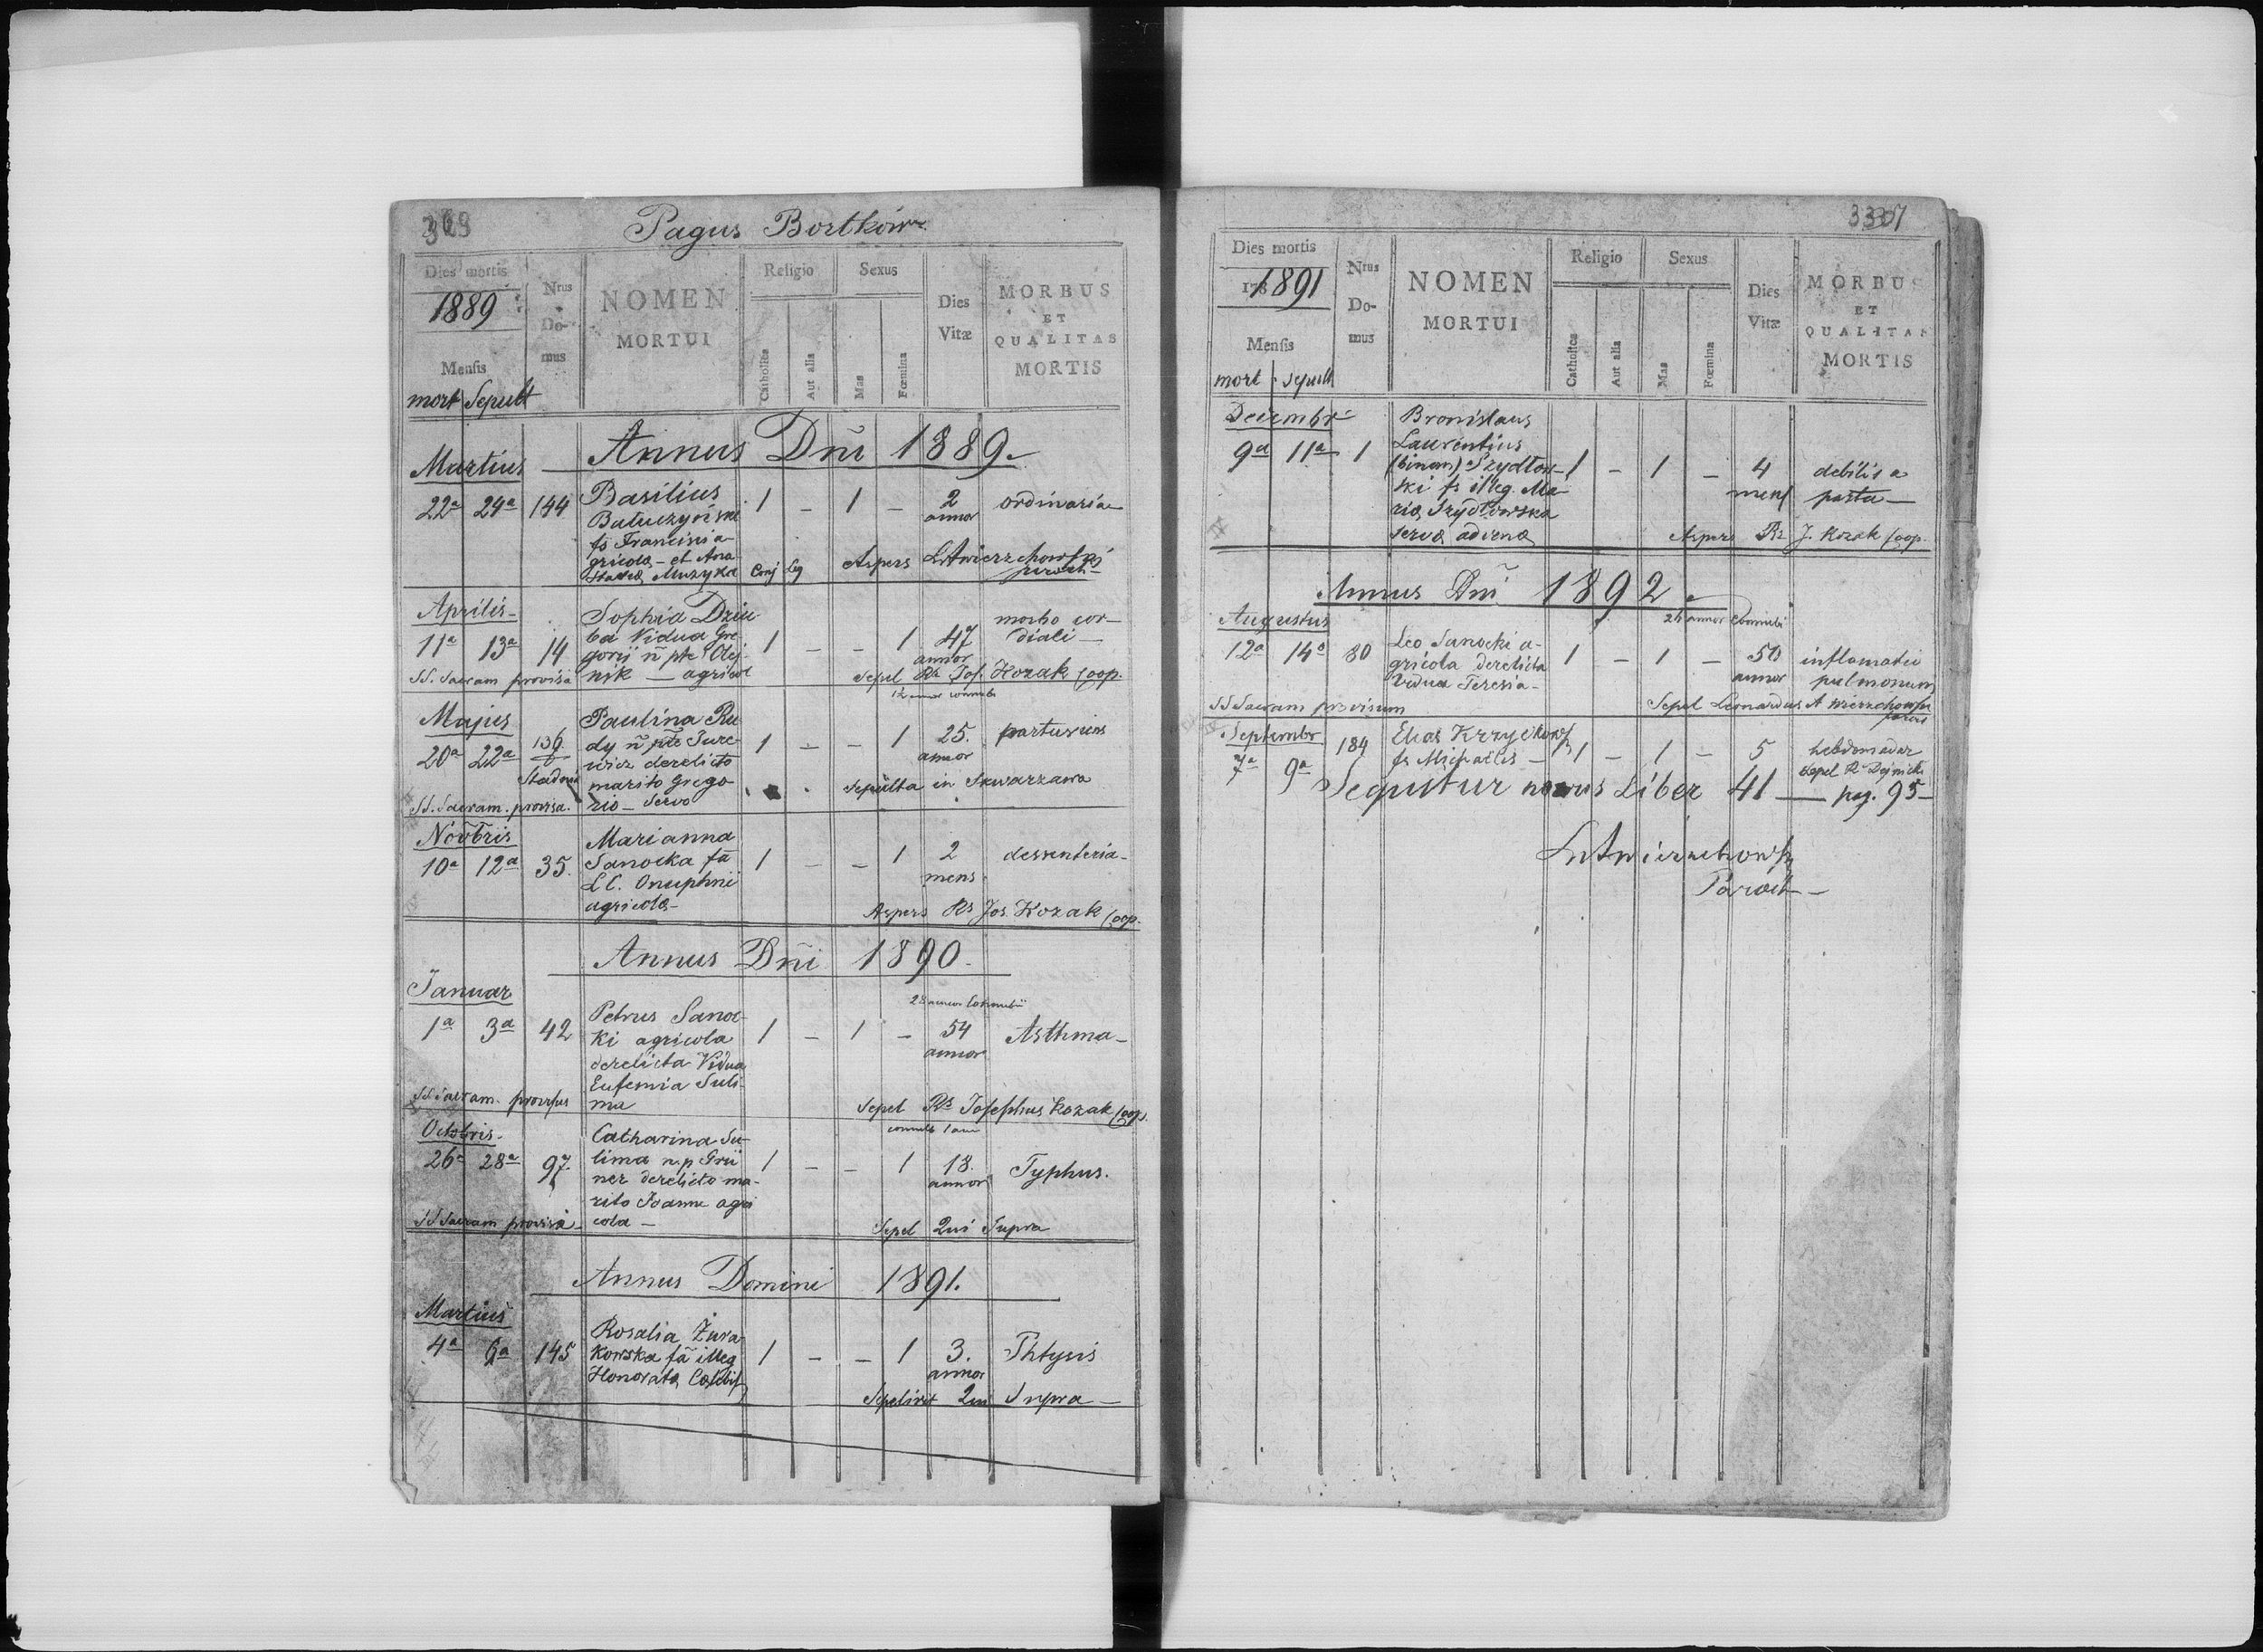 Pagus Bortków
Dies mortis
1889
Mensis
mort Sepult
Nrus Do-mus
NOMEN
MORTUI
Religio
Catholica
Aut alia
Sexus
Mas
Fœmina
Dies Vitæ
MORBUS
ET
QUALITAS
MORTIS
Annus Dñi 1889.
Martius
22ª 24ª 144 Basilius 1 – 1 – 2 annor ordinaria
fs Francisci a-
gricola – et Ana-
stasia Muzyka Conj Leg Aspers
Aprilis
Sophia Dziu-
11ª 13ª 14 ba Vidua Gre- 1 – – 1 47 annor morbo cor-diali
gorii ñ pte Olej-
SS. Sacram provisa nik – agricol Sepel Rs Jos. Kozak Coop.
Majus
Paulina Ru-
20ª 22ª 136 dy ñ pte Jure- 1 – – 1 25. annor parturiens
wicz derelicto
marito Grego- Sepulta in Skwarzawa
SS. Sacram. provisa. rio – Servo
Novbris
Marianna
10ª 12ª 35. Sanocka fa 1 – – 1 2 mens dessenteria
L C. Onuphrii
agricola – Aspers Rs Jos. Kozak Coop.
Annus Dñi 1890.
Januar
Petrus Sanoc-
1ª 3ª 42 ki agricola 1 – 1 – 54 annor Asthma
derelicta Vidua
Eufemia Suli-
SS. Sacram. provisus ma Sepel Rs Josephus Kozak Coop.
Octobris
Catharina Su-
26ª 28ª 97. lima n. p Grü- 1 – – 1 18. annor Typhus.
ner derelicto ma-
rito Joanne agri-
SS Sacram provisa cola – Sepel Qui Supra
Annus Domini 1891.
Martius
Rosalia Żura-
4ª 6ª 145 kowska fa illeg 1 – – 1 3. annor Phtysis
Honorata
Sepelivit Qui Supra –
Dies mortis
1891
Mensis
mort sepult
Nrus Do-mus
NOMEN
MORTUI
Religio
Catholica
Aut alia
Sexus
Mas
Fœmina
Dies Vitæ
MORBUS
ET
QUALITAS
MORTIS
Decembr
Bronislaus
9ª 11ª 1 Laurentius
(binom) Szydłow- 1 – 1 – 4 mens debilis a partu –
ski fs illeg. Ma-
ria Szydłowska
serva advena Aspers Rs J. Kozak Coop.
Annus Dñi 1892
Augustus
12ª 14ª 80 Leo Sanocki a- 1 – 1 – 50 annor inflamatio pulmonum
gricola derelicta
vidua Teresia –
SS Sacram provisum Sepel Leonardus A Wierzchowski
Septembr
7ª 9ª 184
fs Michaelis – 1 – 1 – 5 hebdomadar
Sequitur novus Liber 41 — pag. 95 –
Paroch –